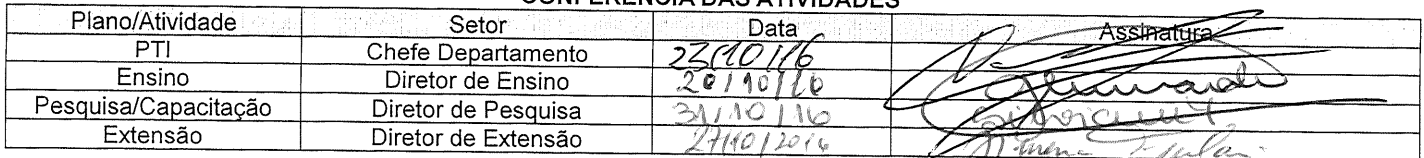 CONFERÊNCIA DAS ATIVIDADES
Plano/Atividade Setor Data Assinatura
PTI Chefe Departamento 25/10/16
Ensino Diretor de Ensino 20/10/16
Pesquisa/Capacitação Diretor de Pesquisa 31/10/16
Extensão Diretor de Extensão 27/10/2016